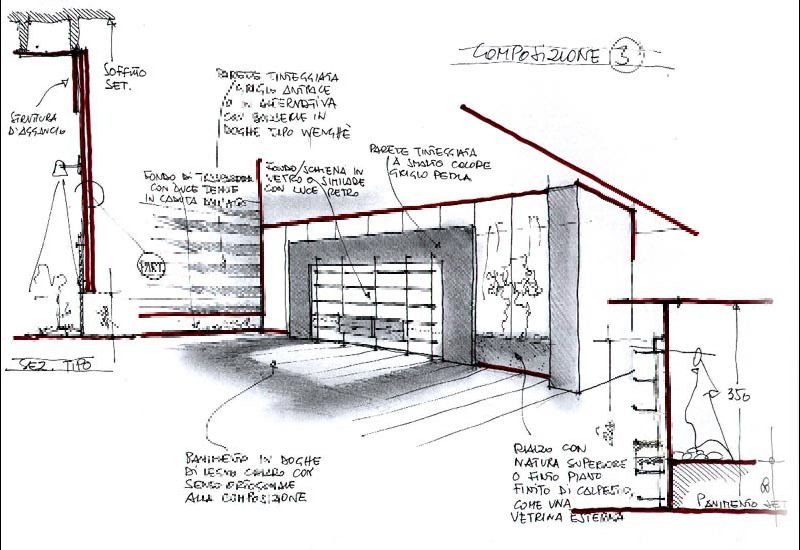 COMPOSIZIONE 3
SOFFITTO
SET.
STRUTTURA
D'AGGANCIO
PARETE TINTEGGIATA
GRIGIO ANTRACE
O IN ALTERNATIVA
CON BOISERIE IN
DOGHE TIPO WENGHÈ
FONDO DI
CON LUCE TENUE
IN CADUTA DALL'ALTO
FONDO/SCHIENA IN
VETRO O SIMILARE
CON LUCE RETRO
PARETE TINTEGGIATA
A SMALTO COLORE
GRIGIO PERLA
PART.
SEZ. TIPO
PAVIMENTO IN DOGHE
DI LEGNO CHIARO CON
SENSO
ALLA COMPOSIZIONE
RIALZO CON
NATURA SUPERIORE
O FINTO PIANO
FINITO DI CALPESTIO,
COME UNA
VETRINA ESTERNA
350
PAVIMENTO SET